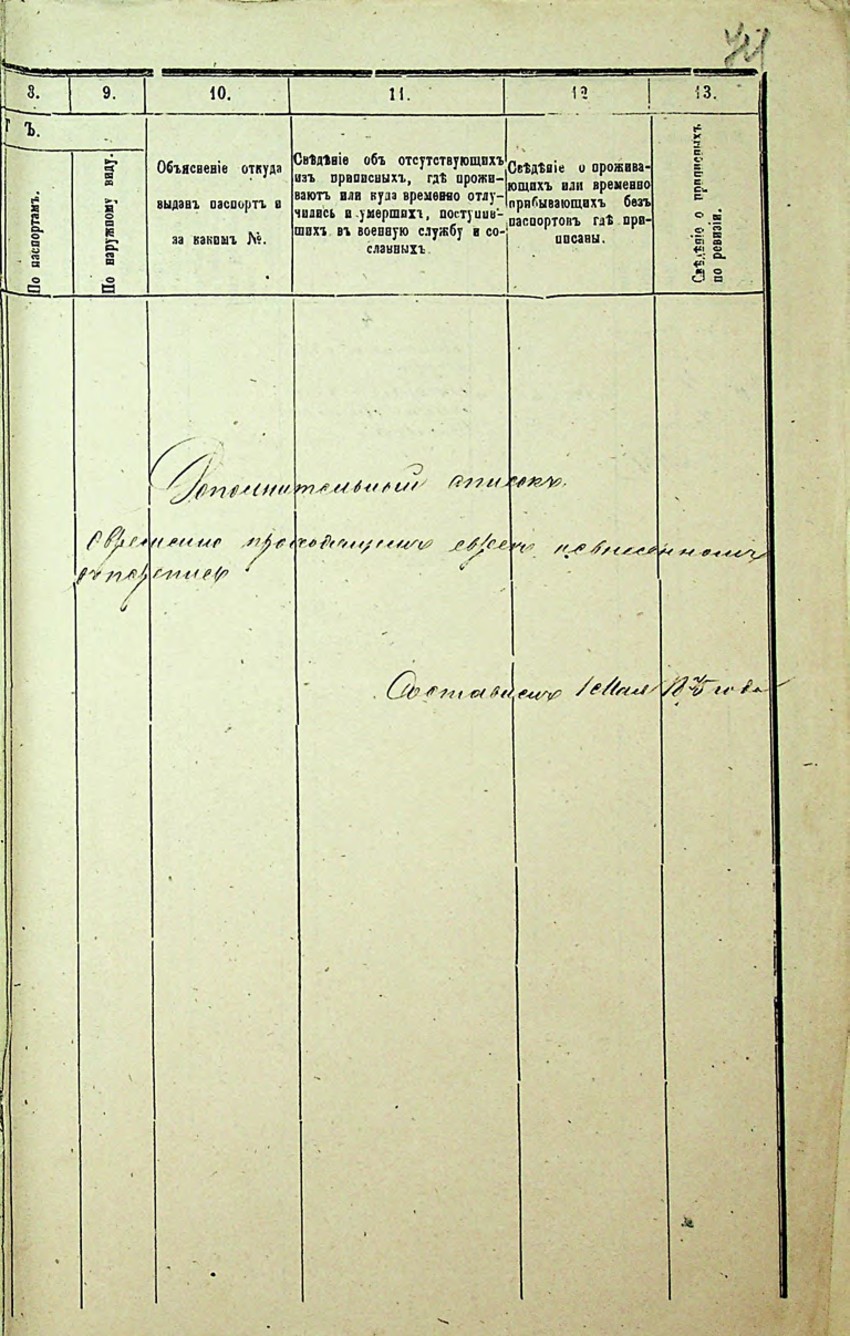 8.
9.
10.
11.
12
13.
Ъ.
По паспортамъ.
По наружному виду.
Объясненіе откуда
выданъ паспортъ и
за какимъ №.
Свѣдѣніе объ отсутствующихъ
изъ приписныхъ, гдѣ прожи-
ваютъ или куда временно отлу-
чились и умершихъ, поступив-
шихъ въ военную службу и со-
сланныхъ.
Свѣдѣніе о прожива-
ющихъ или временно
прибывающихъ безъ
паспортовъ гдѣ при-
писаны.
Свѣдѣніе о приписныхъ
по ревизіи.
Дополнительный списокъ
временно
Составленъ 1 Мая 1875 года